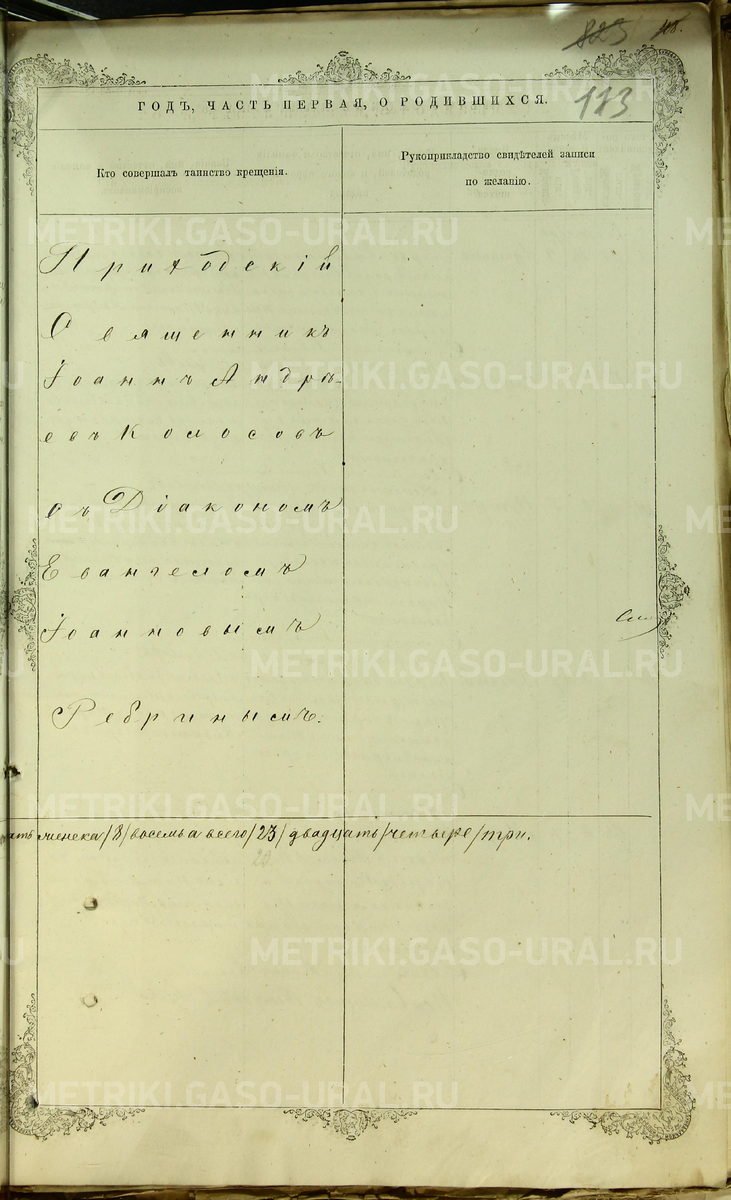 823 118.
ГОДЪ, ЧАСТЬ ПЕРВАЯ, О РОДИВШИХСЯ. 113
Кто совершалъ таинство крещенія.
Рукоприкладство свидѣтелей записи
по желанію.
Приходскій
Священникъ
Іоаннъ Андрѣ-
евъ Колосовъ
съ Діакономъ
Евангеломъ
Іоанновымъ
Ребринымъ.
женска /8/ восемь а всего /23/ двадцать /четыре/ три.
METRIKI.GASO-URAL.RU